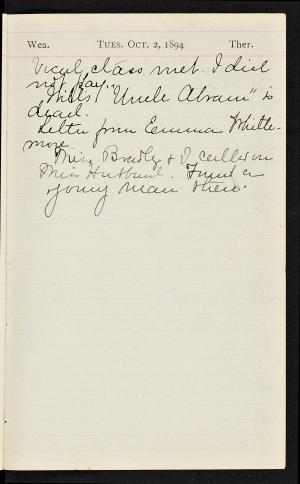 Wea. TUES. OCT. 2, 1894 Ther.
Vocal class met. I did
not pay.
Willis' "Uncle Abram" is
dead.
Letter from Emma Whitte-
more.
Miss Bradley & I called on
Miss Hubbard. Found a
young man there.